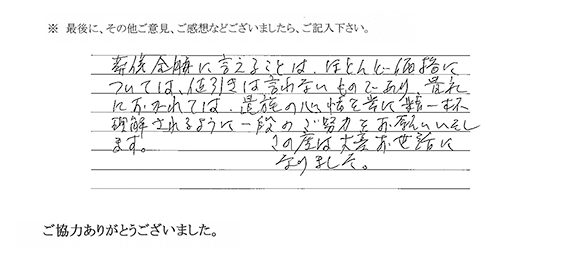 ※ 最後に、その他ご意見、ご感想などございましたら、ご記入下さい。
葬儀全般に言えることは、ほとんど価格に
ついては、値引きは言わないものであり、貴社
におかれては、遺族の心情を常に精一杯
理解されるように一段のご努力をお願いいたし
ます。 この度は大変お世話に
なりました。
ご協力ありがとうございました。